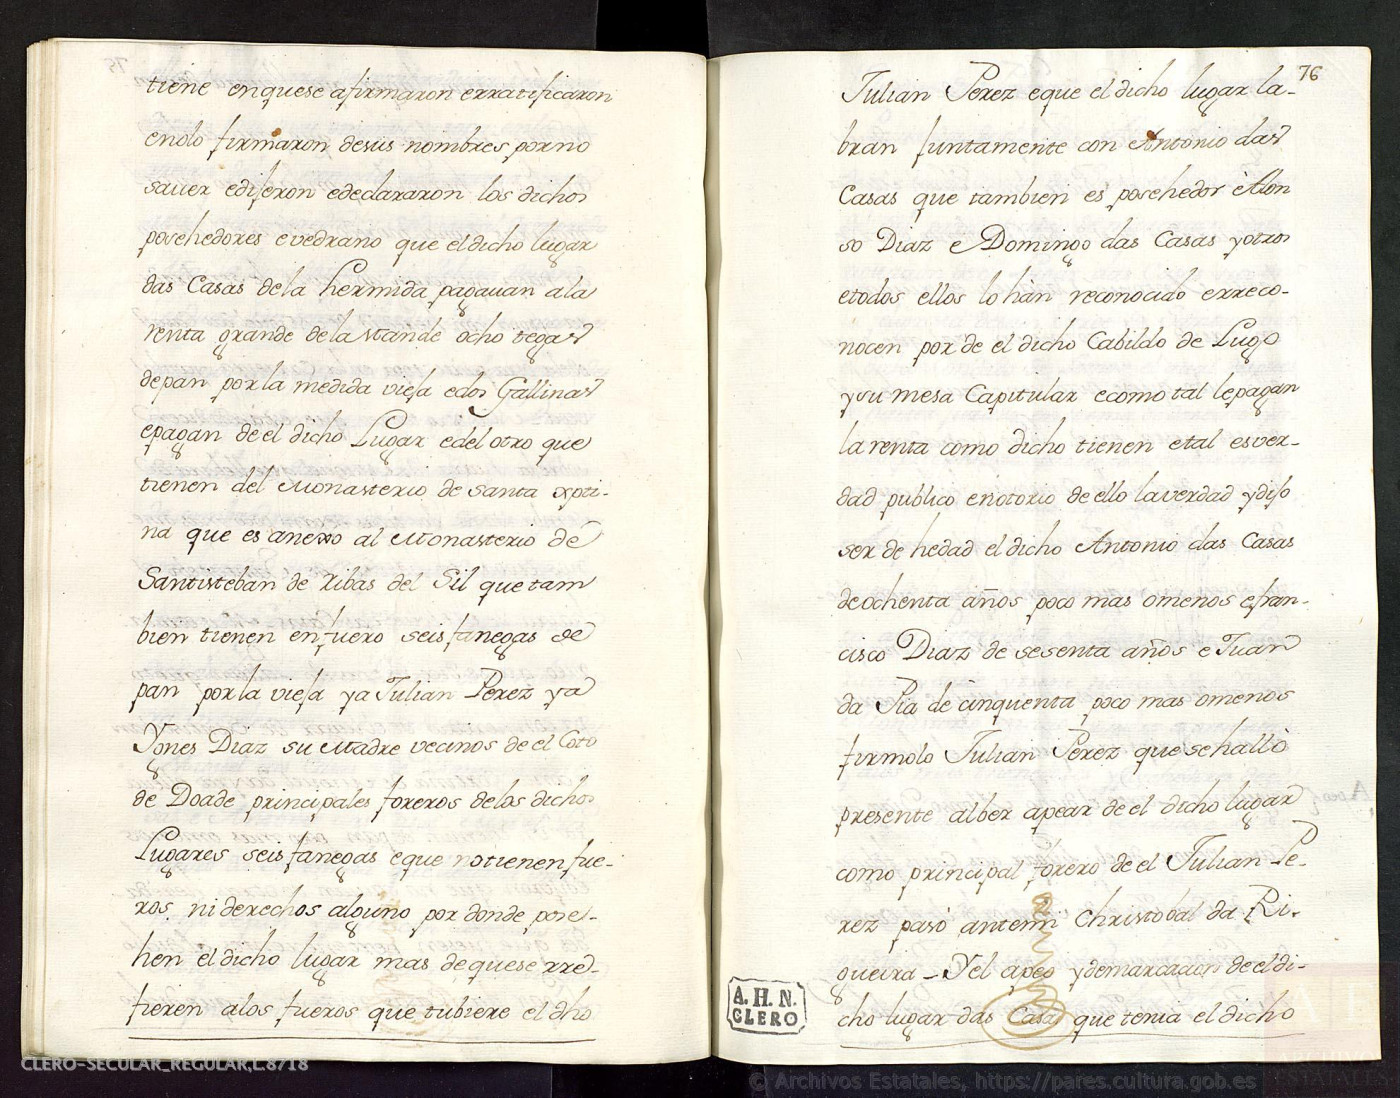 tiene enquese afirmaron erratificaron
enolo firmaron desus nombres porno
sauer edijeron edeclararon los dichos
posehedores evedraño que el dicho lugar
das Casas dela hermida pagauan ala
renta grande dela Mande ocho tegas
depan por la medida vieja edos Gallinas
epagan de el dicho Lugar edel otro que
tienen del Monasterio de Santa xpti-
na que es anexo al Monasterio de
Santisteban de Ribas del Sil que tam
bien tienen enfuero seis fanegas de
pan por la vieja ya Julian Perez ya
Ygnes Diaz su Madre vecinos de el Coto
de Doade principales foreros delos dichos
Lugares seis fanegas eque notienen fue-
ros ni derechos alguno por donde pose-
hen el dicho lugar mas de quese rre-
fieren alos fueros que tubiere el dho
76
Julian Perez eque el dicho lugar la-
bran juntamente con Antonio das
Casas que tambien es posehedor è Alon
so Diaz e Domingo das Casas yotros
etodos ellos lo hàn reconocido erreco-
nocen por de el dicho Cabildo de Lugo
ysu mesa Capitular ecomo tal lepagan
la renta como dicho tienen etal esver-
dad publico enotorio de ello la verdad ydijo
ser de hedad el dicho Antonio das Casas
deochenta años poco mas omenos efran-
cisco Diaz de sesenta años e Juan
da Pia de cinquenta poco mas omenos
firmolo Julian Perez que se hallò
presente alber apear de el dicho lugar
como principal forero de el Julian Pe-
rez pasò antemi Christobal da Ri-
gueira - Y el apeo ydemarcacion de el di-
cho lugar das Casas que tenia el dicho
A. H. N.
CLERO
CLERO-SECULAR_REGULAR,L.8718
© Archivos Estatales, https://pares.cultura.gob.es
ARCHIVOS
ESTATALES